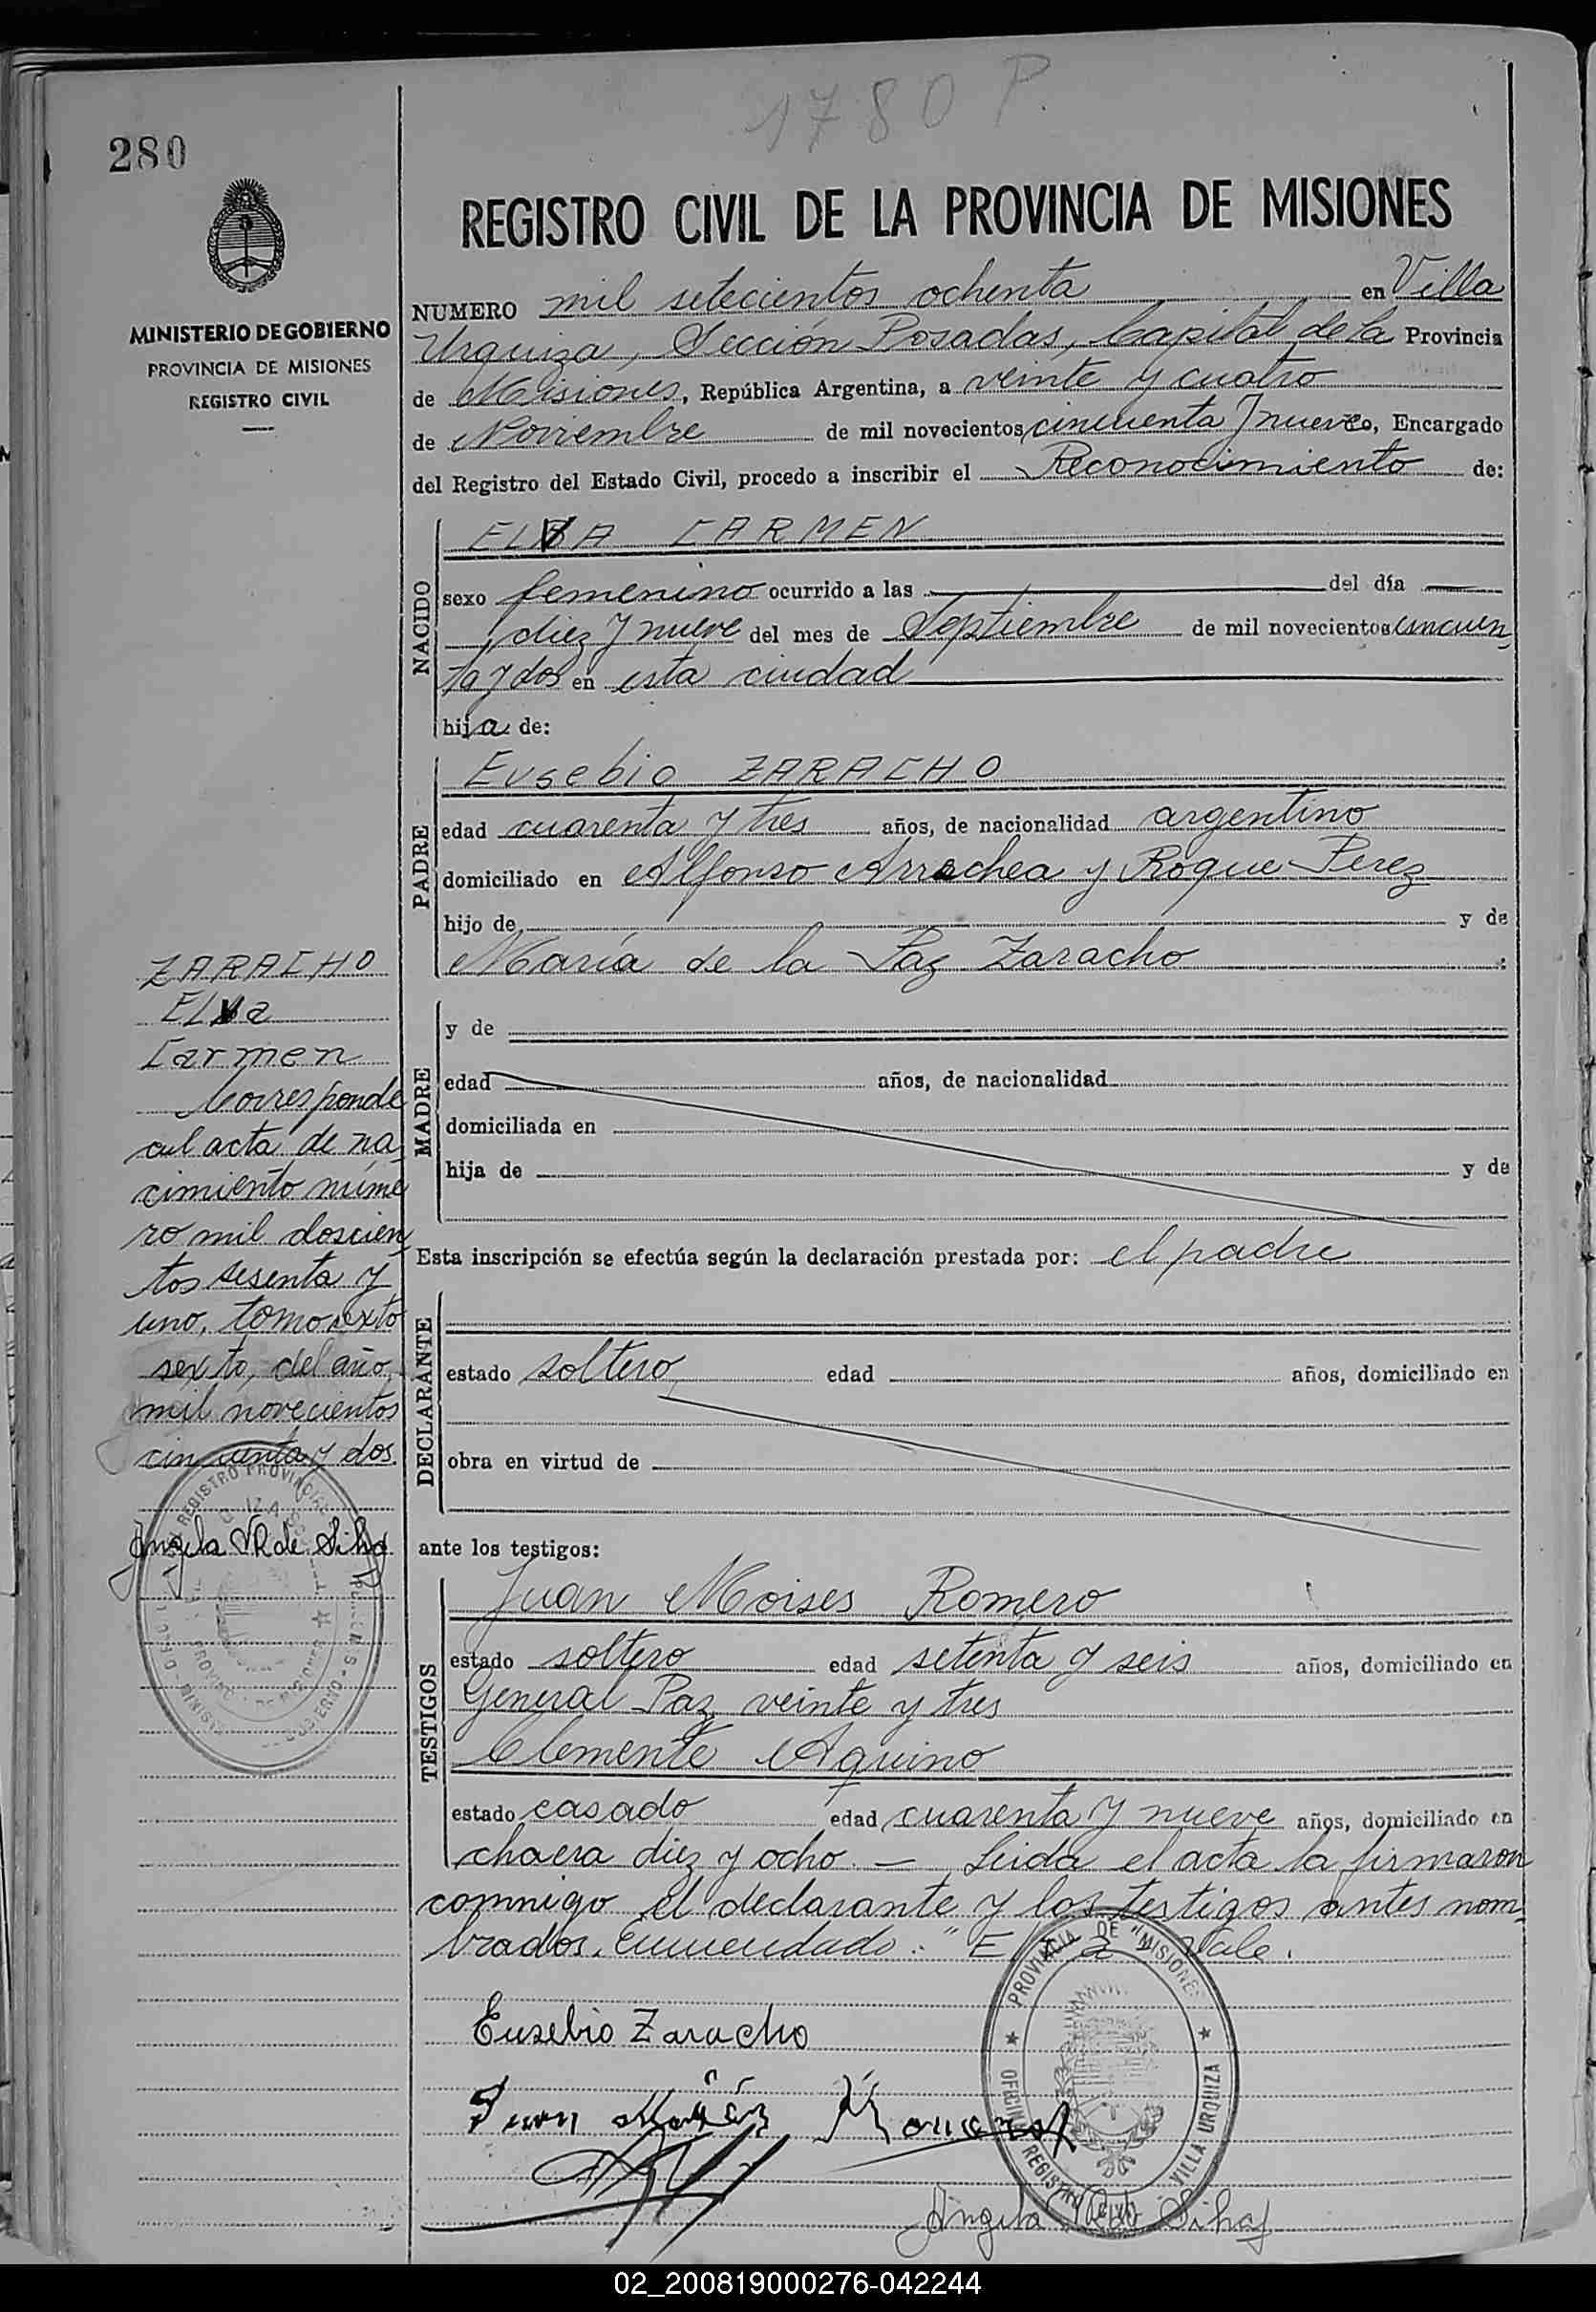 1780 P.
280
REGISTRO CIVIL DE LA PROVINCIA DE MISIONES
MINISTERIO DE GOBIERNO
PROVINCIA DE MISIONES
REGISTRO CIVIL
NUMERO mil setecientos ochenta en Villa
Urquiza, Sección Posadas, Capital de la Provincia
de Misiones, República Argentina, a veinte y cuatro
de Noviembre de mil novecientos cincuenta y nueve, Encargado
del Registro del Estado Civil, procedo a inscribir el Reconocimiento de:
NACIDO
ELVA CARMEN
sexo femenino ocurrido a las del día
diez y nueve del mes de Septiembre de mil novecientos cincuen
ta y dos en esta ciudad
hija de:
PADRE
Eusebio ZARACHO
edad cuarenta y tres años, de nacionalidad argentino
domiciliado en Alfonso Arrechea y Roque Perez
hijo de y de
María de la Paz Zaracho
ZARACHO
Elva
Carmen
Corresponde
al acta de na
cimiento núme
ro mil doscien
tos sesenta y
uno, tomo sexto
sexto, del año
mil novecientos
cincuenta y dos.
Angela V R de Silva
MADRE
y de
edad años, de nacionalidad
domiciliada en
hija de y de
Esta inscripción se efectúa según la declaración prestada por: el padre
DECLARANTE
estado soltero edad años, domiciliado en
obra en virtud de
ante los testigos:
TESTIGOS
Juan Moises Romero
estado soltero edad setenta y seis años, domiciliado en
General Paz veinte y tres
Clemente Aquino
estado casado edad cuarenta y nueve años, domiciliado en
chacra diez y ocho. — Leida el acta la firmaron
conmigo el declarante y los testigos antes nom
brados. Enmendado: "Elva" Vale.
Eusebio Zaracho
Juan Moisés Romero
PROVINCIA DE MISIONES
OFICINA REGISTRO CIVIL VILLA URQUIZA
Angela V R de Silva
02_200819000276-042244